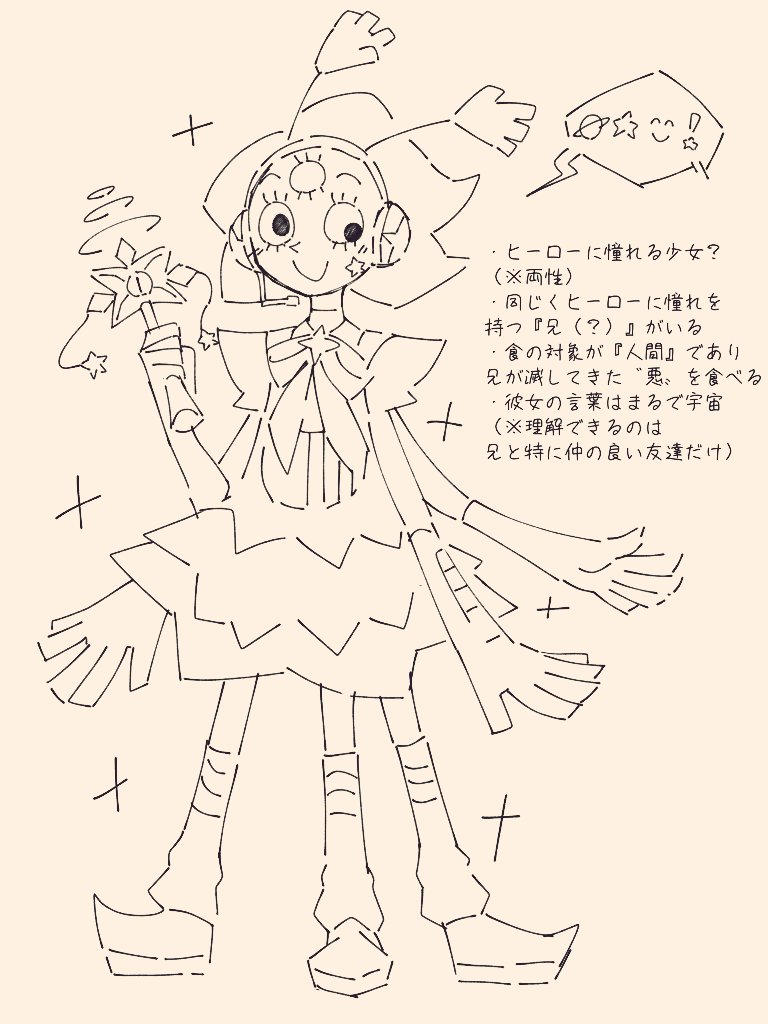 ・ヒーローに憧れる少女?
(※両性)
・同じくヒーローに憧れを
持つ『兄(?)』がいる
・食の対象が『人間』であり
兄が滅してきた〝悪〟を食べる
・彼女の言葉はまるで宇宙
(※理解できるのは
兄と特に仲の良い友達だけ)